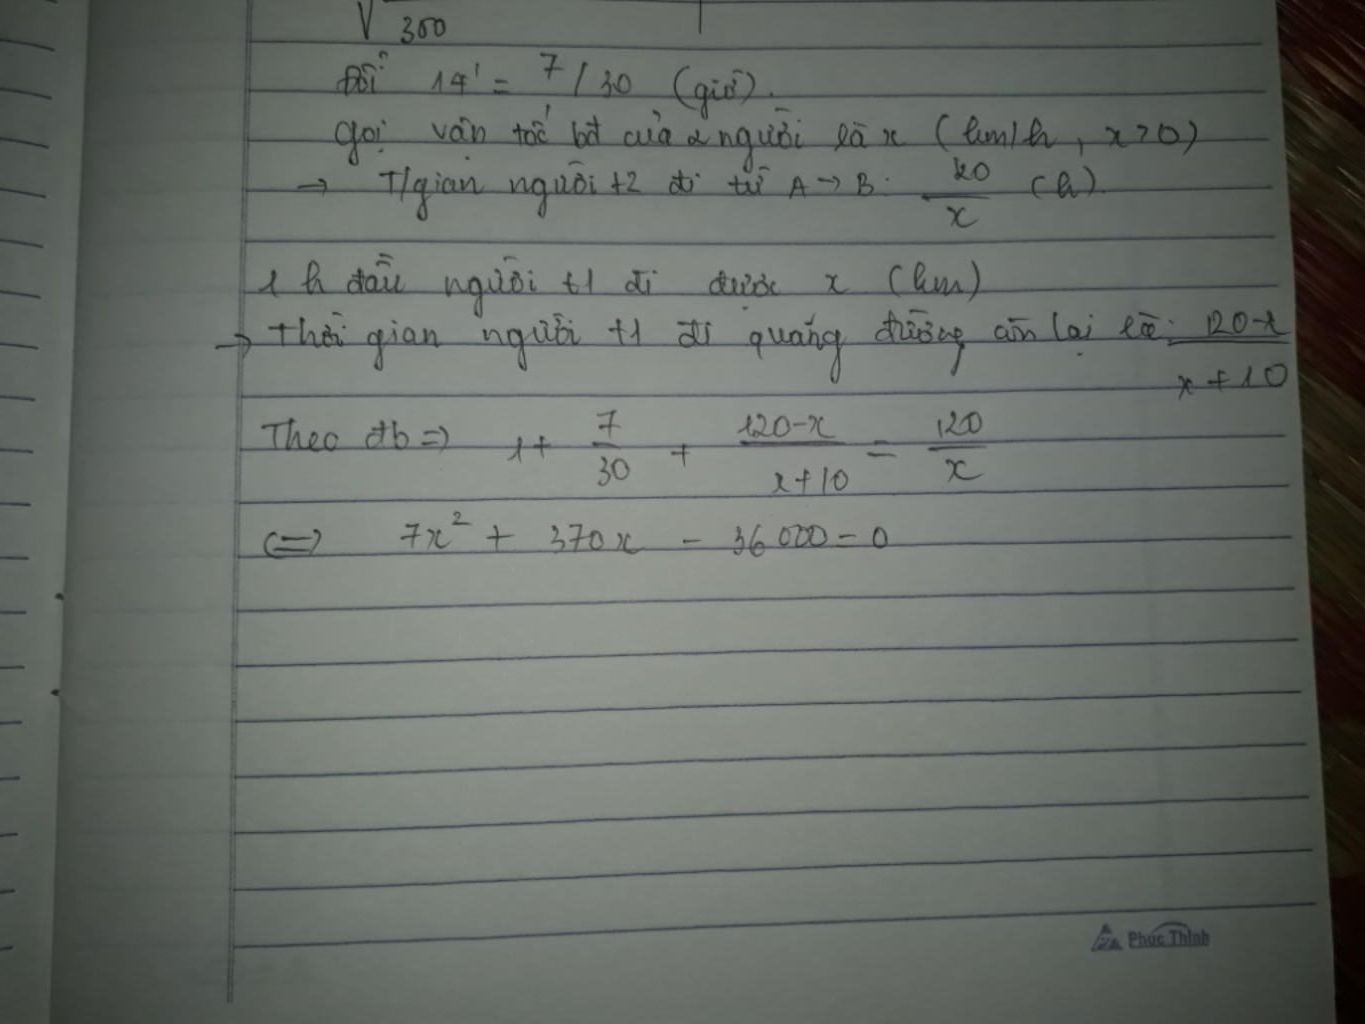 √ 300
Đổi 14' = 7/30 (giờ).
gọi vận tốc bđ của 2 người là x (km/h, x>0)
→ T/gian người t2 đi từ A → B: 120/x (h).
1 h đầu người t1 đi được x (km)
→ Thời gian người t1 đi quãng đường còn lại là: 120-x/x+10
Theo đb => 1 + 7/30 + 120-x/x+10 = 120/x
<=> 7x² + 370x - 36000 = 0
Phúc Thịnh